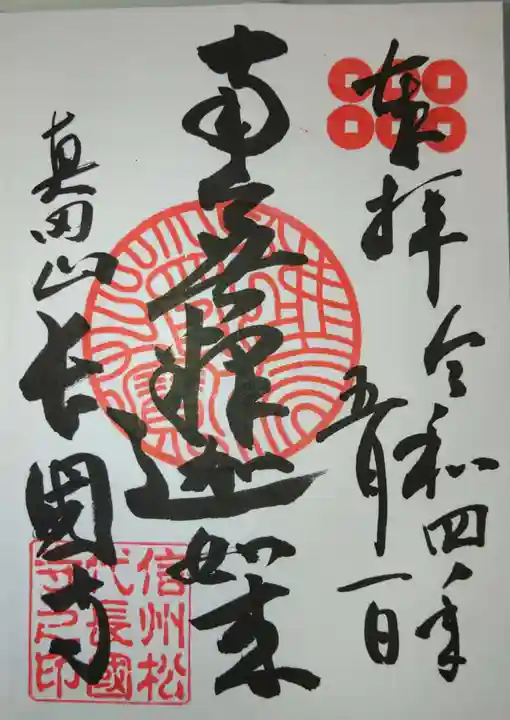 奉拝 令和四年
五月一日
南無釋迦如来
真田山 長國寺
信州松
代長國
寺之印